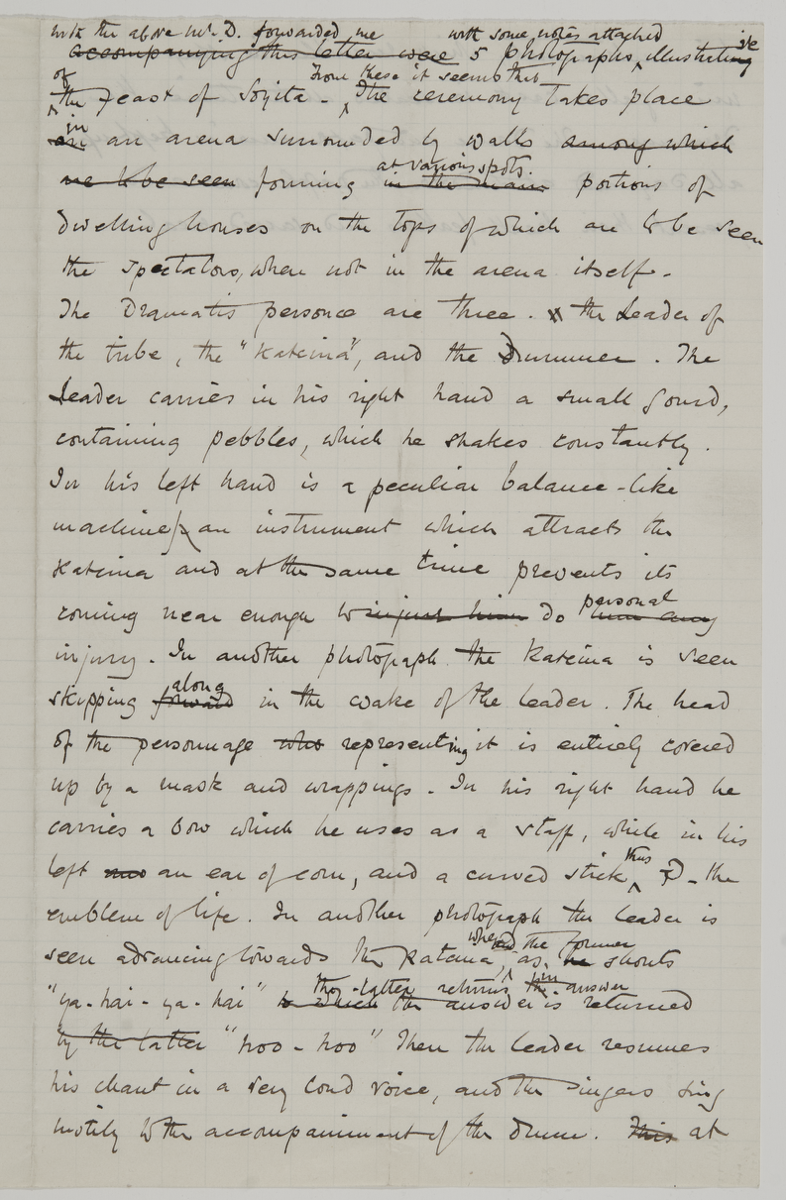 With the above Mr. D. forwarded me with some notes attached
accompanying this letter were 5 photographs, illustrative
of From these it seems that
the Feast of Soyita - The ceremony takes place
in
an arena surrounded by walls among which
at various spots.
are to be seen forming in the main portions of
dwelling houses on the tops of which are to be seen
the spectators, when not in the arena itself.
The Dramatis personæ are three. the Leader of
the tribe, the "Katcina", and the Drummer. The
Leader carries in his right hand a small gourd,
containing pebbles, which he shakes constantly.
In his left hand is a peculiar balance-like
machine, an instrument which attracts the
Katcina and at the same time prevents its
personal
coming near enough to injure him do him any
injury. In another photograph the Katcina is seen
along
skipping forward in the wake of the leader. The head
of the personage who representing it is entirely covered
up by a mask and wrappings. In his right hand he
carries a bow which he uses as a staff, while in his
thus
left an ear of corn, and a curved stick - the
emblem of life. In another photograph the leader is
the former
seen advancing towards the Katcina, as he shouts
the latter returns answer
"ya-hai-ya-hai" to which the answer is returned
by the latter "hoo-hoo" Then the leader resumes
his chant in a very loud voice, and the singers sing
to the accompaniment of the drum. This at